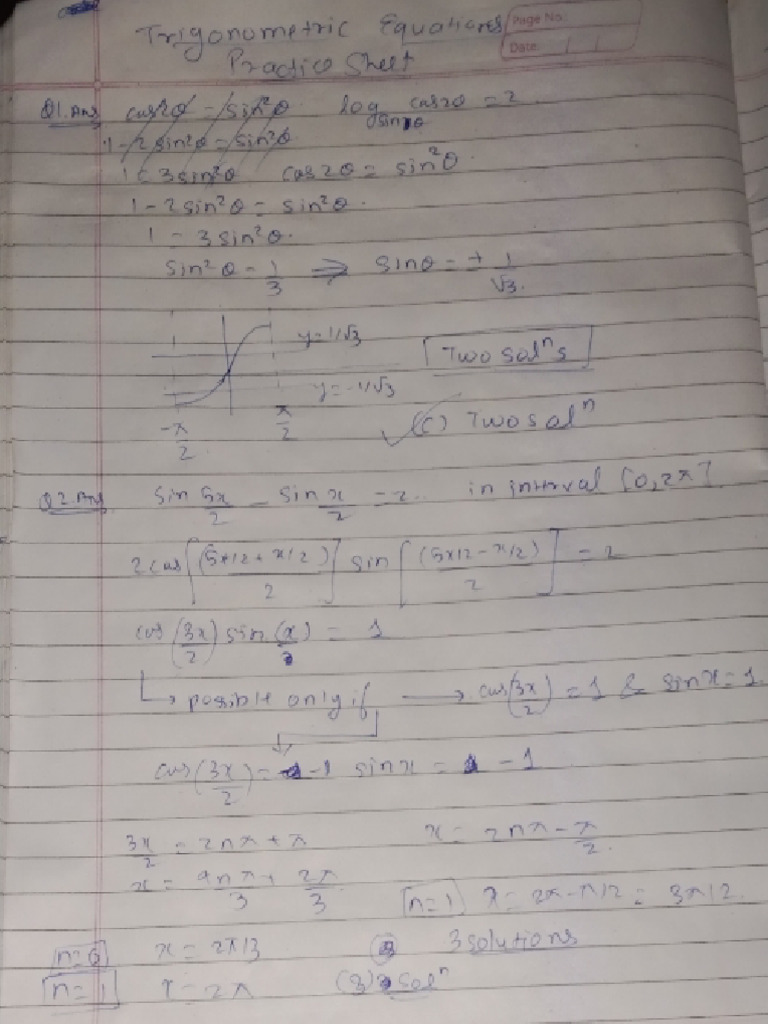 Trigonometric Equations
Page No:
Date:
Practice Sheet
Q1. Ans cos2θ = sin²θ log sinθ cos2θ = 2
1-2sin²θ = sin²θ
1 = 3sin²θ cos2θ = sin²θ
1-2sin²θ = sin²θ.
1 = 3sin²θ.
sin²θ = 1/3 ⇒ sinθ = ± 1/√3.
y=1/√3
Two solⁿs
y=-1/√3
-π/2 π/2 (c) Two solⁿ
Q2. Ans sin 5x/2 - sin x/2 = 2 in interval [0,2π]
2cos[(5x/2+x/2)/2] sin[(5x/2-x/2)/2] = 2
cos(3x/2) sin(x) = 1
↳ possible only if → cos(3x/2) = 1 & sinx = 1
cos(3x/2) = -1 sinx = -1
3x/2 = 2nπ+π x = 2nπ-π/2.
x = 4nπ/3 + 2π/3 n=1) x = 2π-π/2 = 3π/2
n=0 x = 2π/3 3 solutions
n=1 x = 2π (3) solⁿ